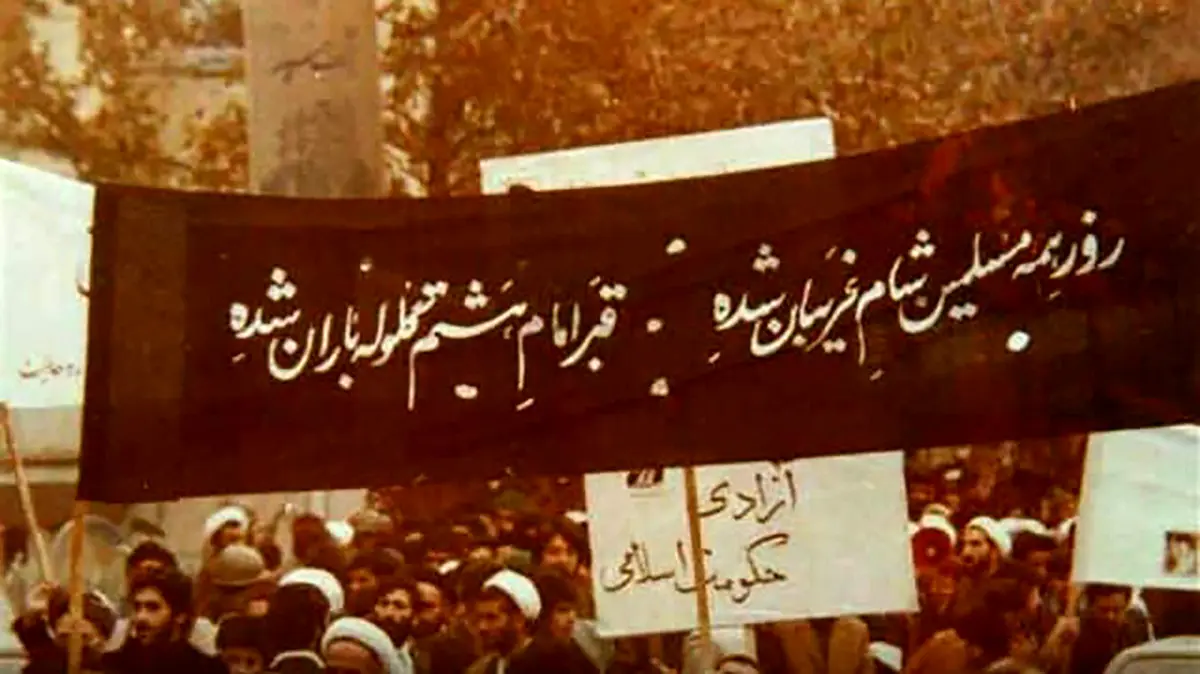 روز همه مسلمین شام غریبان شده
قبر امام هشتم گلوله باران شده
آزادی
حکومت اسلامی